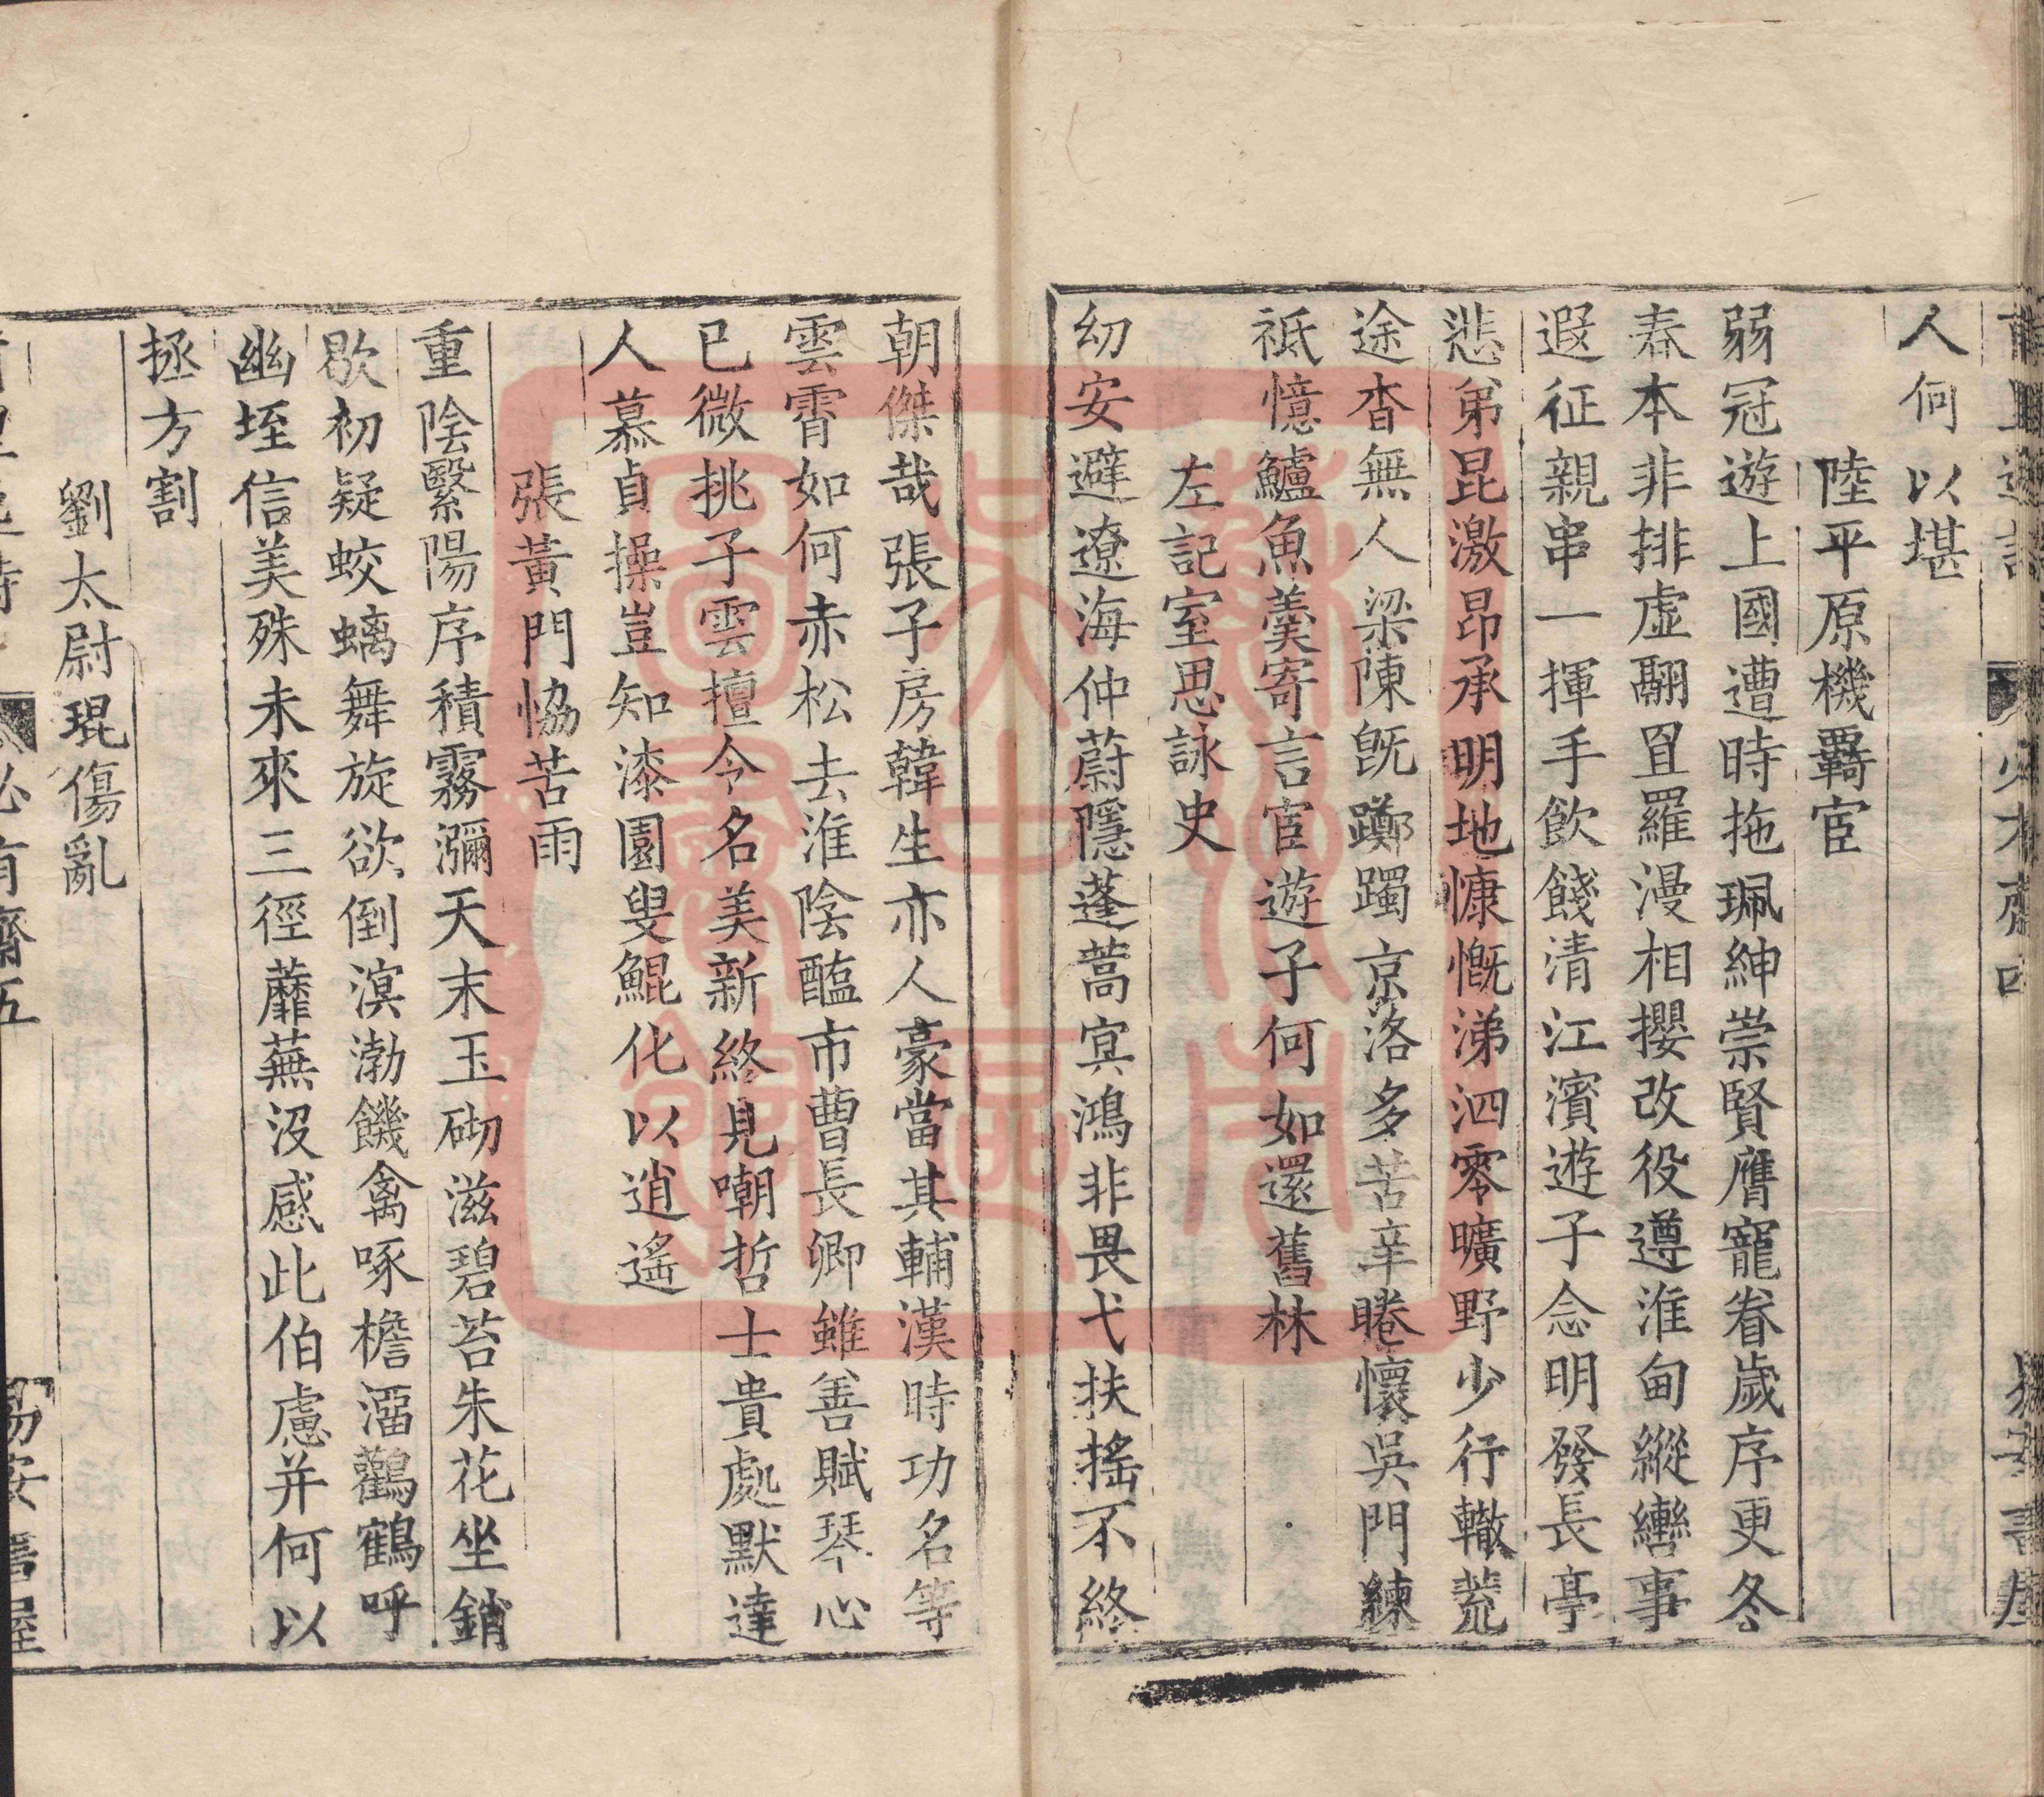 人何以堪
陸平原機羇宦
弱冠遊上國遭時拖珮紳崇賢膺寵眷歲序更冬
春本非排虛翮罝羅漫相攖改役遵淮甸縱轡事
遐征親串一揮手飲餞清江濱遊子念明發長亭
悲弟昆激昂承明地慷慨涕泗零曠野少行轍荒
途杳無人梁陳旣躑躅京洛多苦辛睠懷吳門練
祇憶鱸魚羹寄言宦遊子何如還舊林
左記室思詠史
幼安避遼海仲蔚隱蓬蒿冥鴻非畏弋扶搖不終
朝傑哉張子房韓生亦人豪當其輔漢時功名等
雲霄如何赤松去淮陰醢市曹長卿雖善賦琴心
已微挑子雲擅令名美新終見嘲哲士貴處默達
人慕貞操豈知漆園叟鯤化以逍遙
張黃門恊苦雨
重陰繄陽序積霧瀰天末玉砌滋碧苔朱花坐銷
歇初疑蛟螭舞旋欲倒溟渤饑禽啄檐溜鸛鶴呼
幽垤信美殊未來三徑蘼蕪沒感此伯慮并何以
拯方割
劉太尉琨傷亂